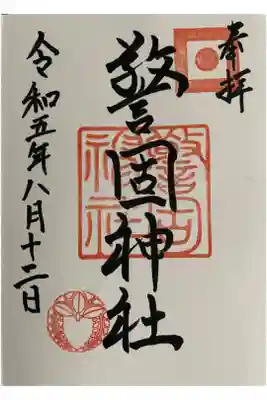 奉拝
警固神社
警固
神社
令和五年八月十二日